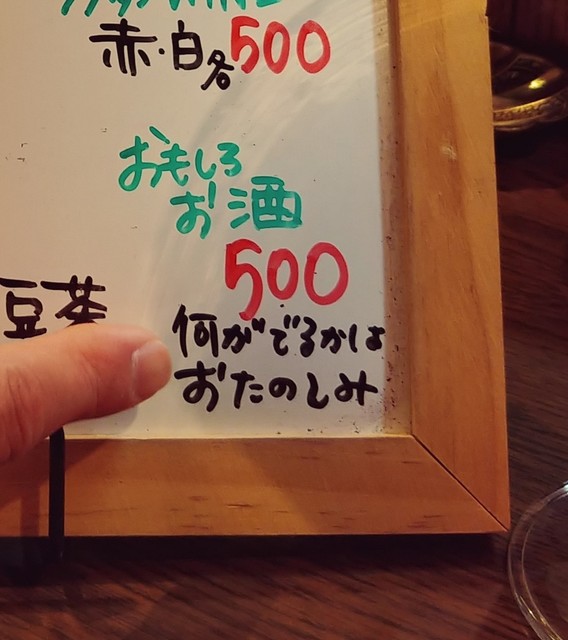 赤・白各500
おもしろ
お酒
500
豆茶
何がでるかは
おたのしみ